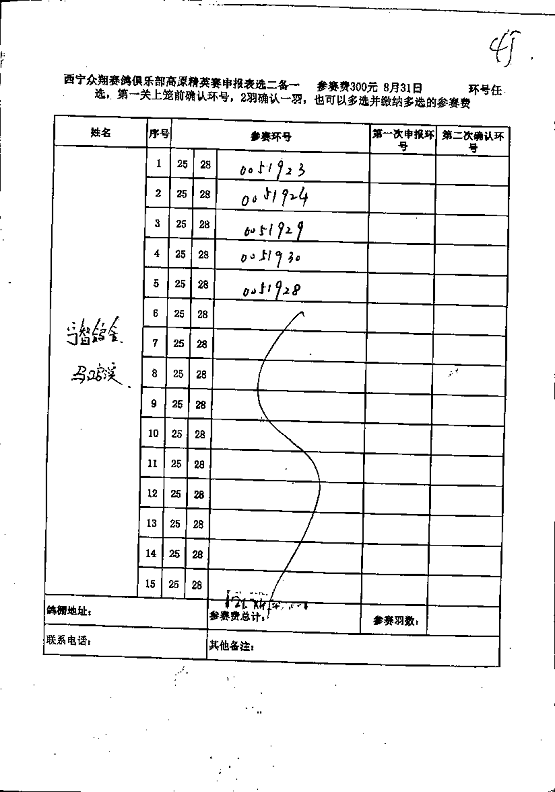 西宁众翔赛鸽俱乐部高原精英赛申报表选二备一 参赛费300元 8月31日 环号任
选，第一关上笼前确认环号，2羽确认一羽，也可以多选并缴纳多选的参赛费
姓名 序号 参赛环号 第一次申报环号 第二次确认环号
1 25 28 0051923
2 25 28 0051924
3 25 28 0051929
4 25 28 0051930
5 25 28 0051928
6 25 28
7 25 28
8 25 28
9 25 28
10 25 28
11 25 28
12 25 28
13 25 28
14 25 28
15 25 28
鸽棚地址： 参赛费总计： 参赛羽数：
联系电话： 其他备注：